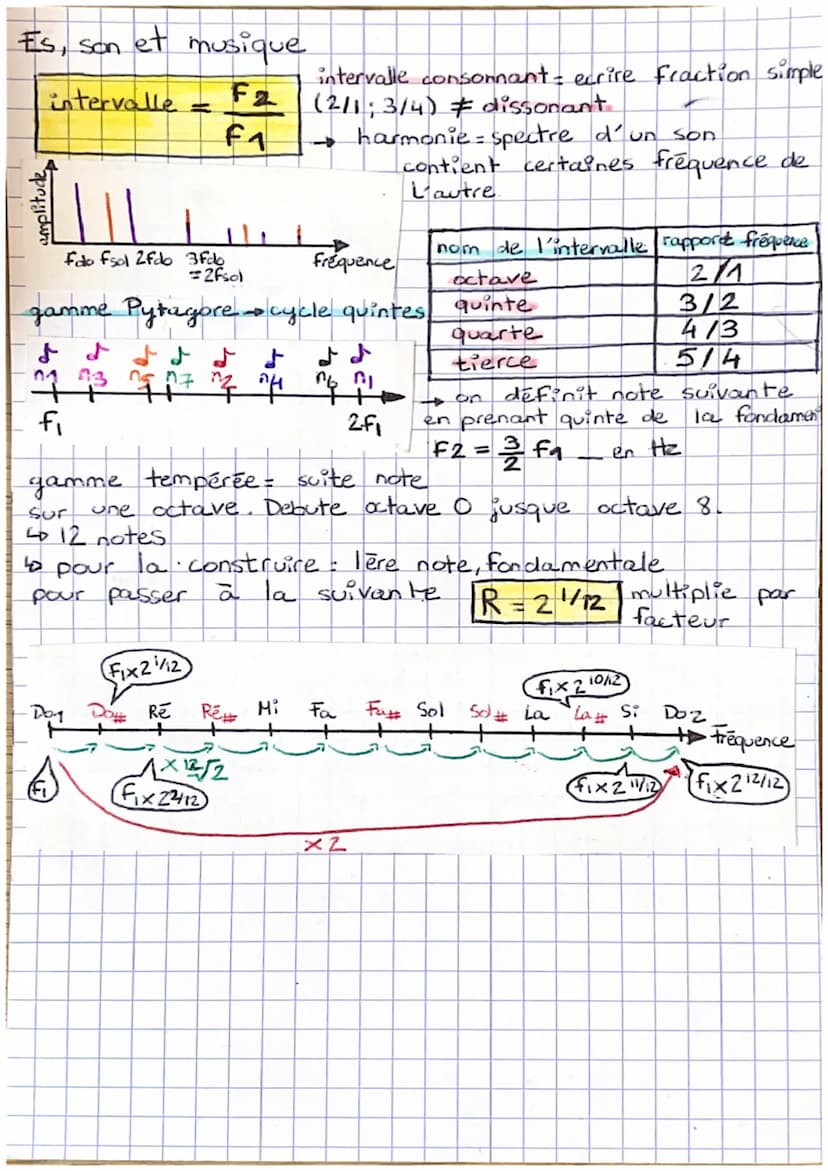 Es, son et musique
intervalle = F2/F1
intervalle consonnant = ecrire fraction simple
(2/1 ; 3/4) ≠ dissonant
→ harmonie = spectre d'un son
contient certaines fréquence de
L'autre
amplitude
fdo fsol 2fdo 3fdo
=2fsol
fréquence
nom de l'intervalle | rapport fréquence
octave | 2/1
quinte | 3/2
quarte | 4/3
tierce | 5/4
gamme Pytagore → cycle quintes
n1 n3 n5 n7 n2 n4 n6 n1
f1 2f1
→ on définit note suivante
en prenant quinte de la fondamen
F2 = 3/2 f1 _ en Hz
gamme tempérée = suite note
sur une octave. Debute octave 0 jusque octave 8.
↳ 12 notes
↳ pour la construire : 1ère note, fondamentale
pour passer à la suivante R = 2^1/12 multiplie par
facteur
f1x2^1/12
f1x2^10/12
Do1 Do# Ré Ré# Mi Fa Fa# Sol Sol# La La# Si Do2
fréquence
x 12√2
f1
f1x2^2/12
f1x2^11/12
f1x2^12/12
x2